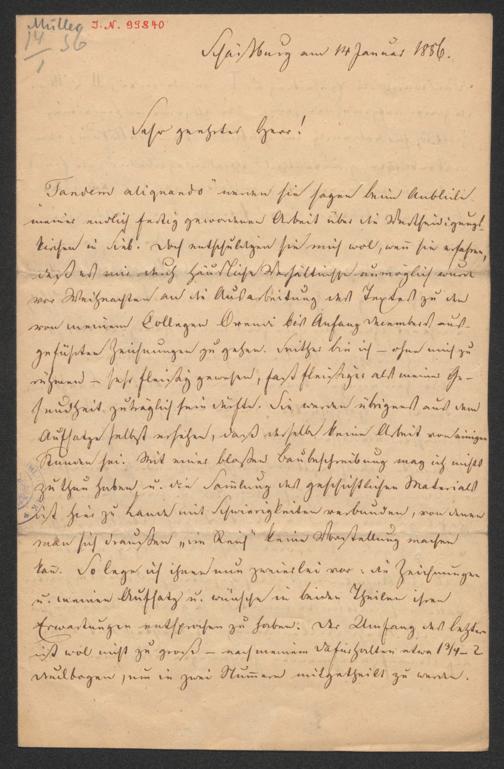 Müller
14/1 56
I.N. 99840
Schäßburg am 14 Januar 1856.
Sehr geehrter Herr!
"Tandem aliquando" werden sie sagen beim Anblicke
meiner endlich fertig gewordenen Arbeit über die Vertheidigungs-
kirchen in Sieb. Doch entschuldigen sie mich wol, wenn sie erfahren,
daß es mir durch häusliche Verhältnisse unmöglich wurde
vor Weihnachten an die Ausarbeitung des Textes zu den
von meinem Collegen Orendi bis Anfang Decembers aus-
geführten Zeichnungen zu gehen. Seither bin ich – ohne mich zu
rühmen – sehr fleißig gewesen, fast fleißiger als meiner Ge-
sundheit zuträglich sein dürfte. Sie werden übrigens aus dem
Aufsatze selbst ersehen, daß derselbe keine Arbeit von einigen
Stunden sei. Mit einer bloßen Baubeschreibung mag ich nichts
zu thun haben u. die Samlung des geschichtlichen Materials
ist hier zu Lande mit Schwierigkeiten verbunden, von denen
man sich draußen „im Reich" keine Vorstellung machen
kan. So lege ich ihnen nun zweierlei vor: die Zeichnungen
u. meinen Aufsatz u. wünsche in beiden Theilen ihren
Erwartungen entsprochen zu haben. Der Umfang des letztern
ist wol nicht zu groß – nach meinem Dafürhalten etwa 1 3/4 – 2
Druckbogen, um in zwei Nummern mitgetheilt zu werden.